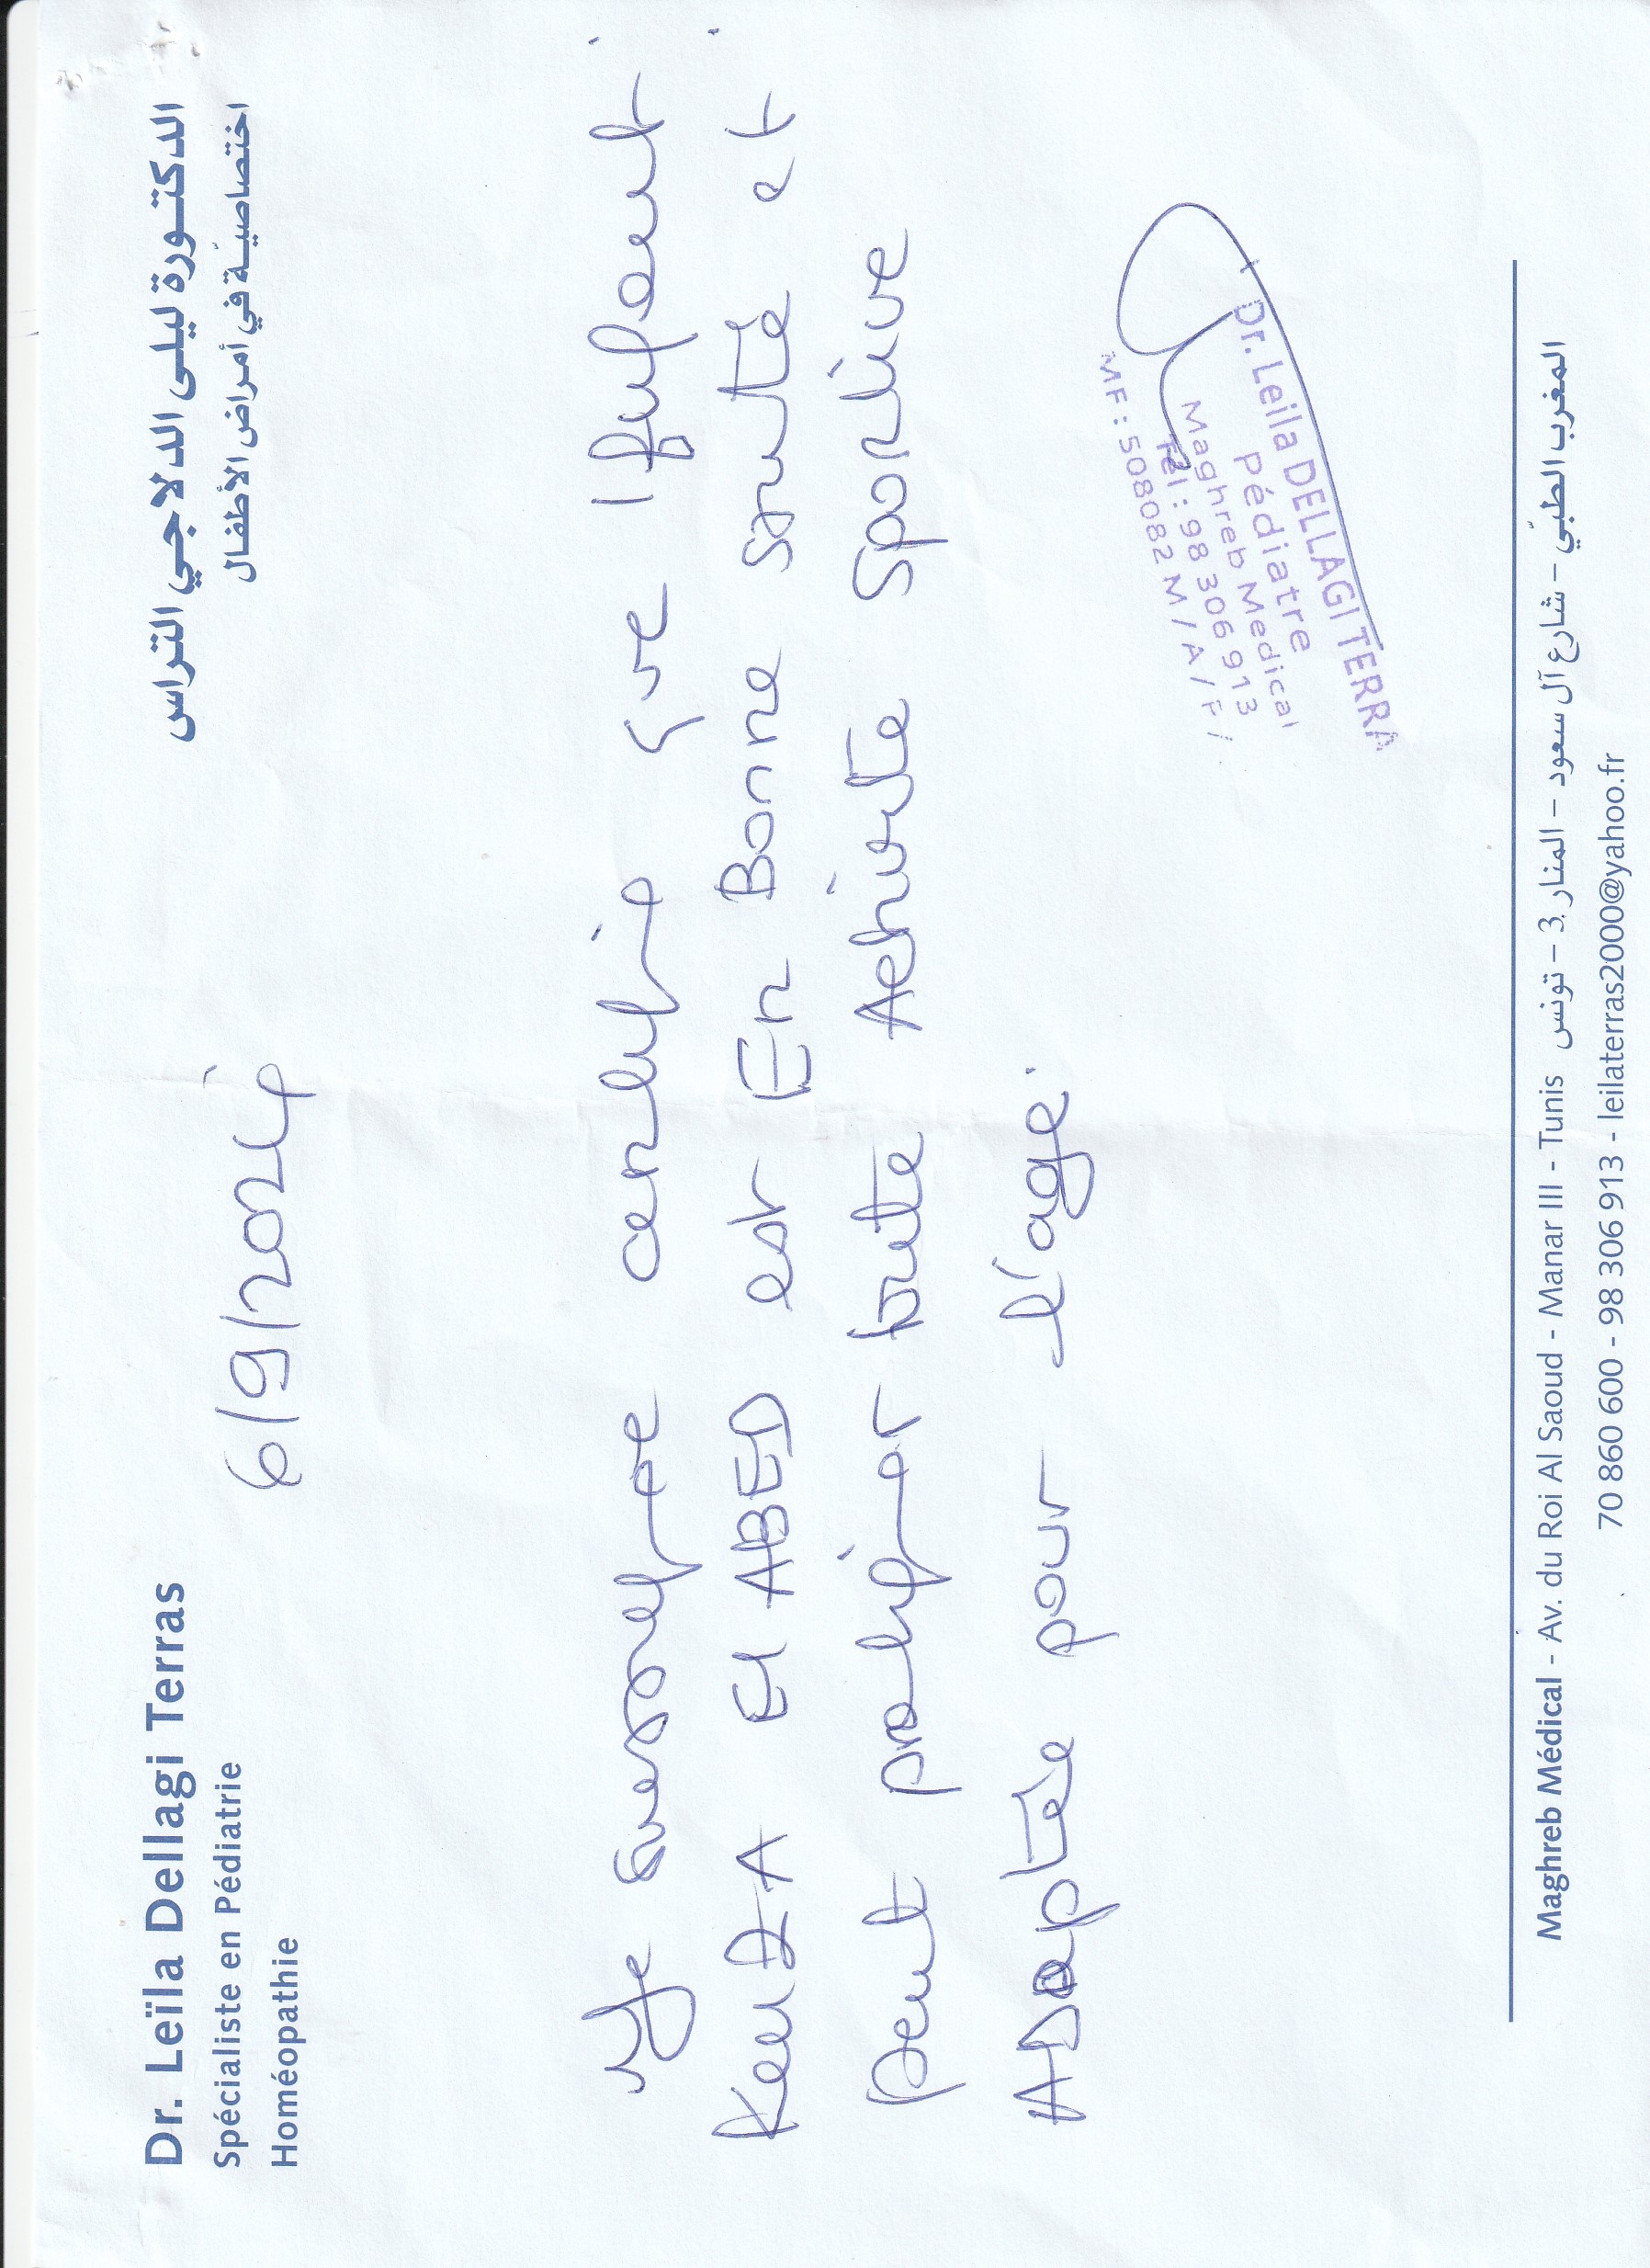 Dr. Leïla Dellagi Terras
Spécialiste en Pédiatrie
Homéopathie
الدكتورة ليلى الدلاجي التراس
اختصاصيّة في أمراض الأطفال
6/9/2024
Je soussignée certifie que l'enfant :
KenZA El ABED est En Bonne santé et
peut pratiquer toute Activité sportive
ADaptée pour l'âge.
Dr. Leila DELLAGI TERRA
Pédiatre
Maghreb Medical
Tél : 98 306 913
MF : 508082 M / A / P /
Maghreb Médical - Av. du Roi Al Saoud - Manar III - Tunis المغرب الطبّي – شارع آل سعود – المنار 3 – تونس
70 860 600 - 98 306 913 - leilaterras2000@yahoo.fr